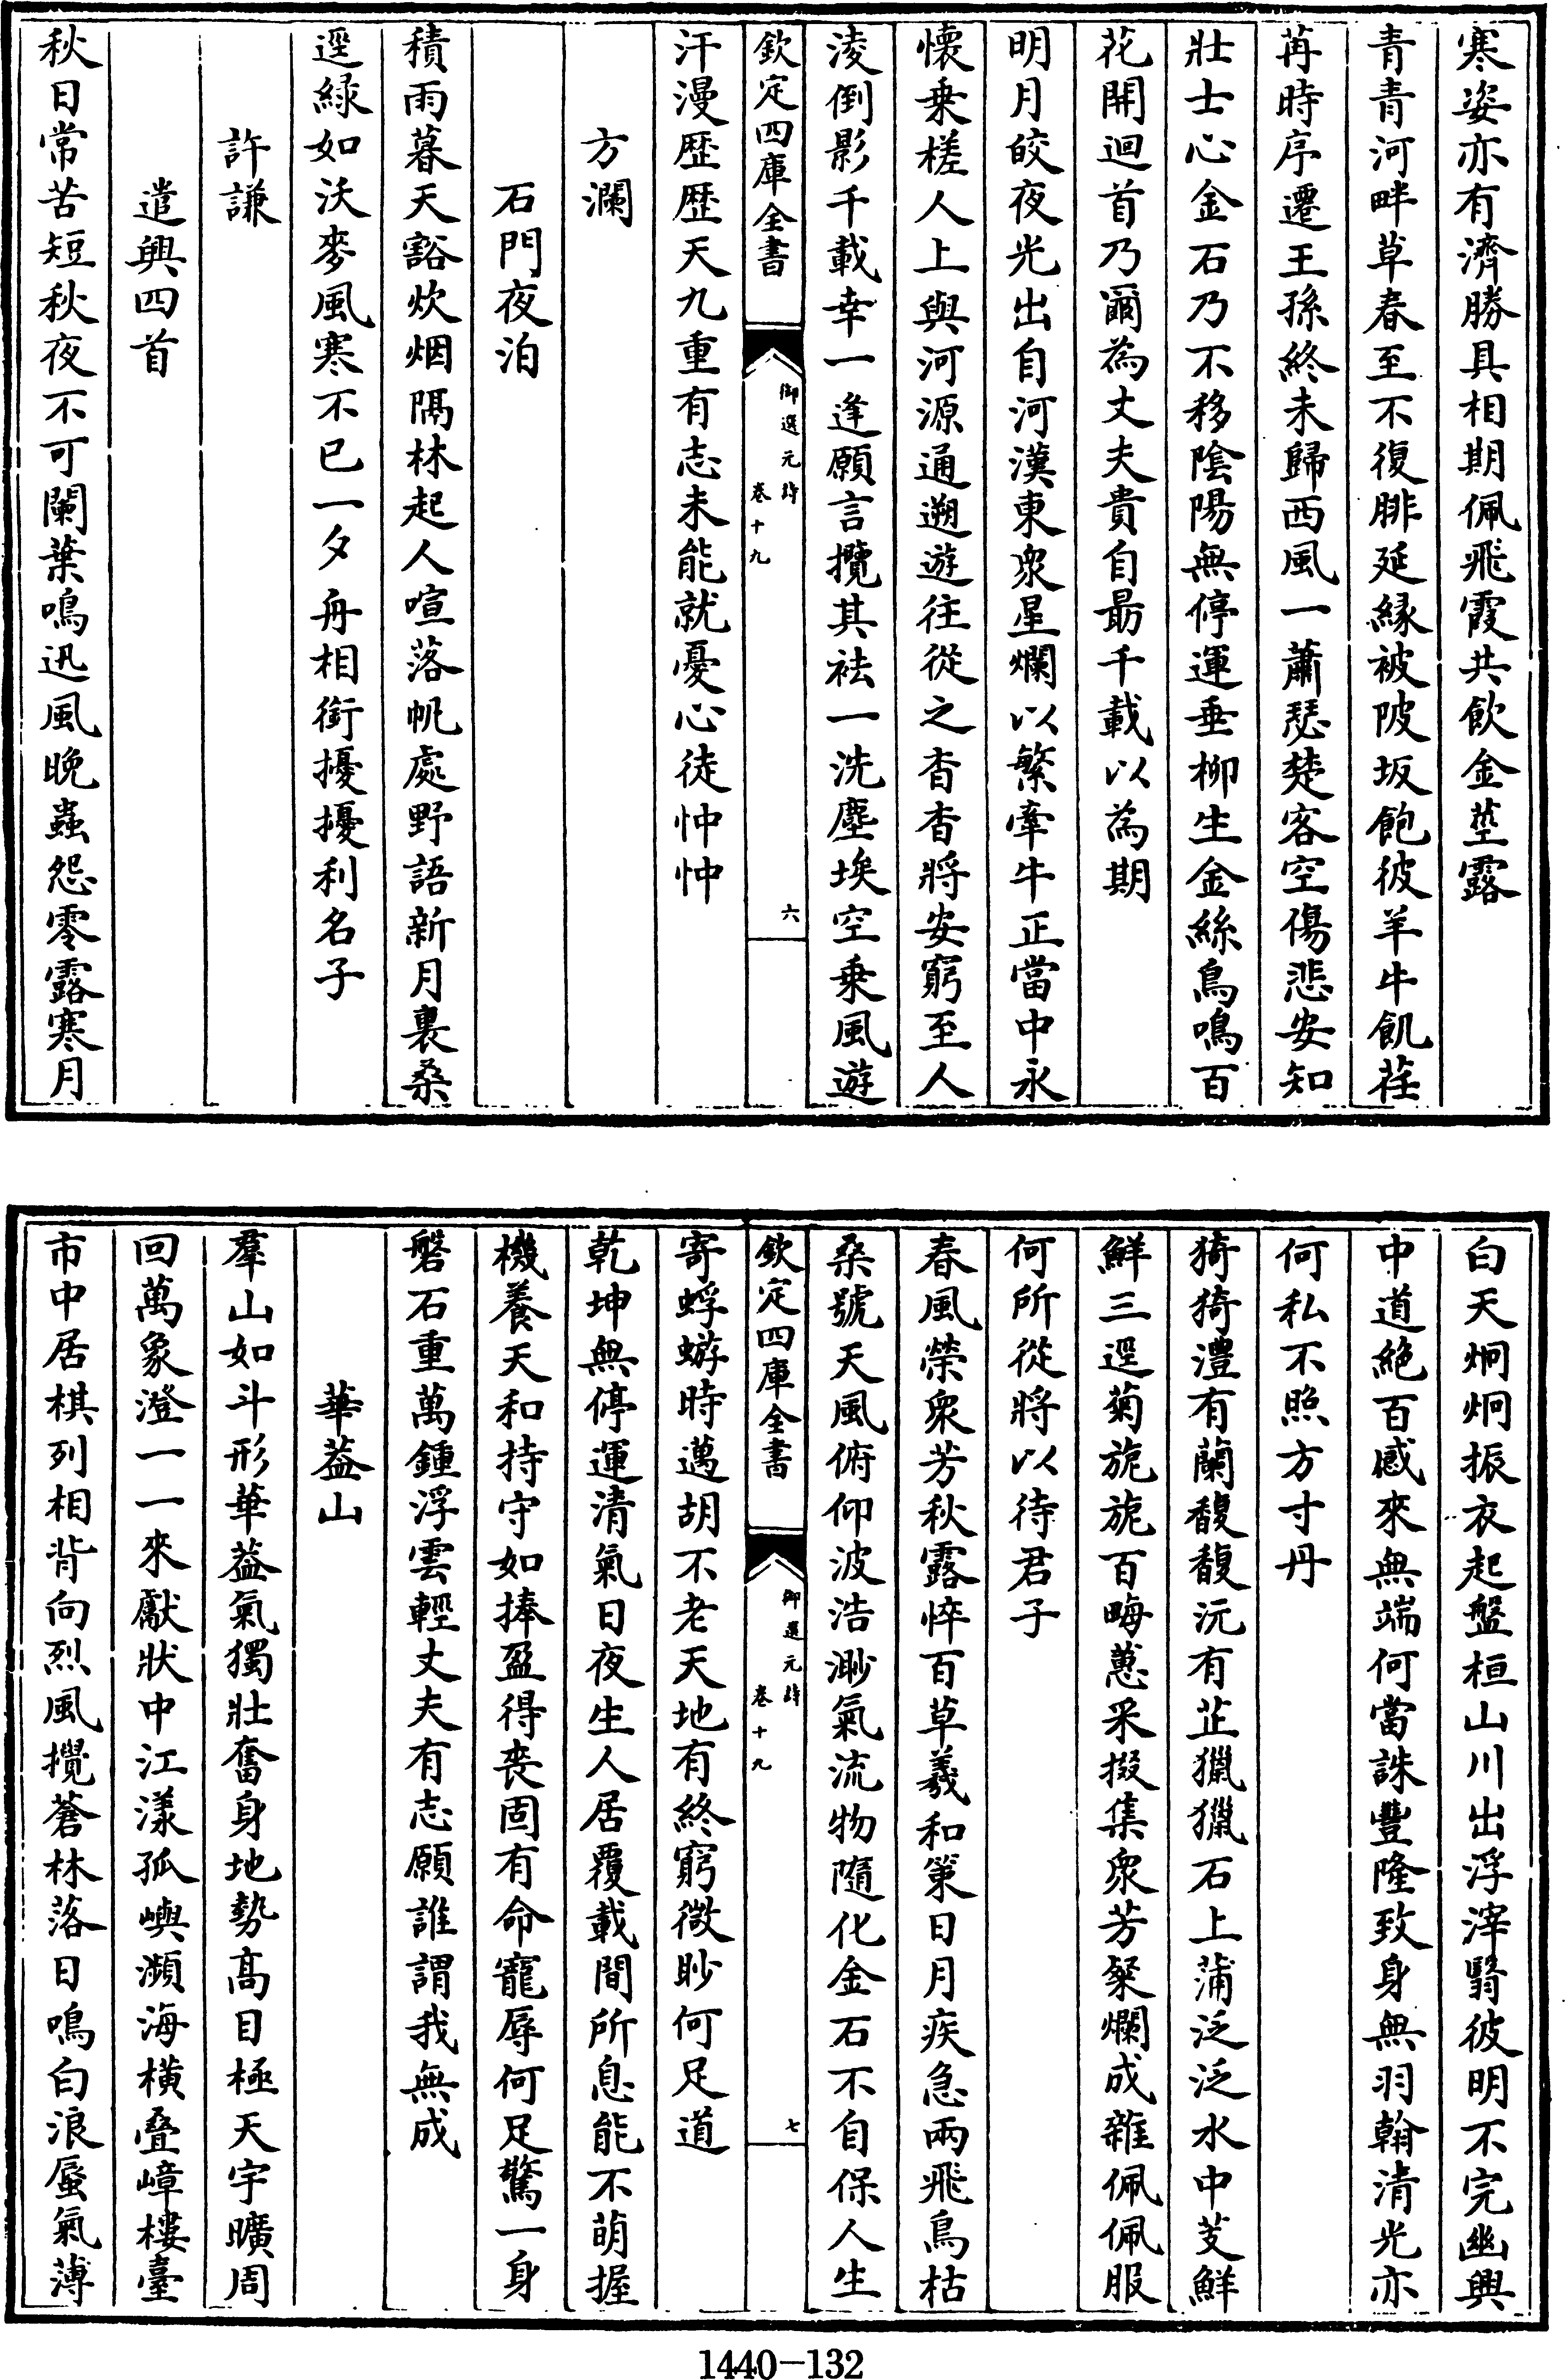 寒姿亦有濟勝具相期佩飛霞共飲金莖露
青青河畔草春至不復腓延縁被陂坂飽彼羊牛飢荏
苒時序遷王孫終未歸西風一蕭瑟楚客空傷悲安知
壯士心金石乃不移陰陽無停運垂柳生金絲鳥鳴百
花開迴首乃爾為丈夫貴自勗千載以為期
明月皎夜光出自河漢東衆星爛以繁牽牛正當中永
懐乗槎人上與河源通遡遊往從之杳杳將安窮至人
淩倒影千載幸一逢願言攬其袪一洗塵埃空乗風遊
欽定四庫全書
御選元詩
卷十九
六
汗漫歴歴天九重有志未能就憂心徒忡忡
方瀾
石門夜泊
積雨暮天豁炊烟隔林起人喧落帆處野語新月裏桑
逕緑如沃麥風寒不已一夕舟相銜擾擾利名子
許謙
遣興四首
秋日常苦短秋夜不可闌葉鳴迅風晚蟲怨零露寒月
白天炯炯振衣起盤桓山川出浮滓翳彼明不完幽興
中道絶百感來無端何當誅豐隆致身無羽翰清光亦
何私不照方寸丹
猗猗澧有蘭馥馥沅有芷獵獵石上蒲泛泛水中芰鮮
鮮三逕菊旎旎百畮蕙采掇集衆芳粲爛成雜佩佩服
何所從將以待君子
春風榮衆芳秋露悴百草羲和策日月疾急兩飛鳥枯
桑號天風俯仰波浩渺氣流物隨化金石不自保人生
欽定四庫全書
御選元詩
卷十九
七
寄蜉蝣時邁胡不老天地有終窮微眇何足道
乾坤無停運清氣日夜生人居覆載間所息能不萌握
機養天和持守如捧盈得喪固有命寵辱何足驚一身
磐石重萬鍾浮雲輕丈夫有志願誰謂我無成
華葢山
羣山如斗形華葢氣獨壯奮身地勢髙目極天宇曠周
回萬象澄一一來獻狀中江漾孤嶼瀕海橫疊嶂樓臺
市中居棋列相背向烈風攪蒼林落日鳴白浪蜃氣薄
1440-132